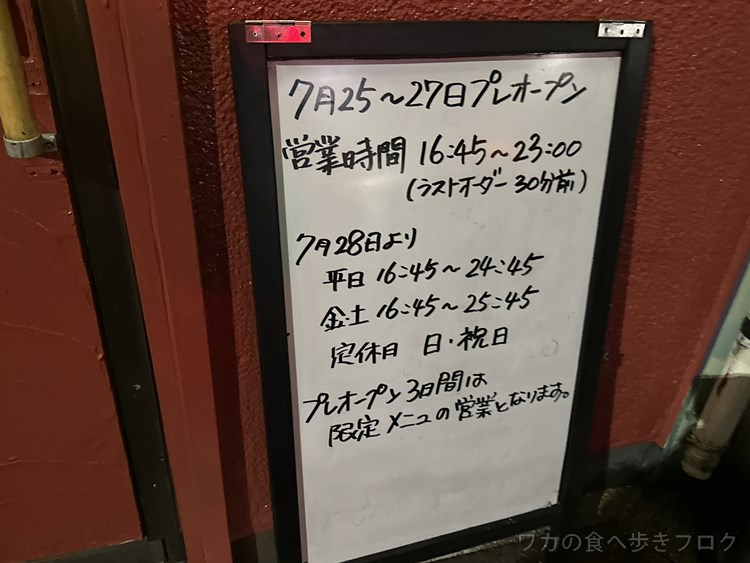 7月25～27日プレオープン
営業時間 16:45～23:00
(ラストオーダー 30分前)
7月28日より
平日 16:45～24:45
金・土 16:45～25:45
定休日 日・祝日
プレオープン 3日間は
限定メニュの営業となります。
ワカの食べ歩きブログ